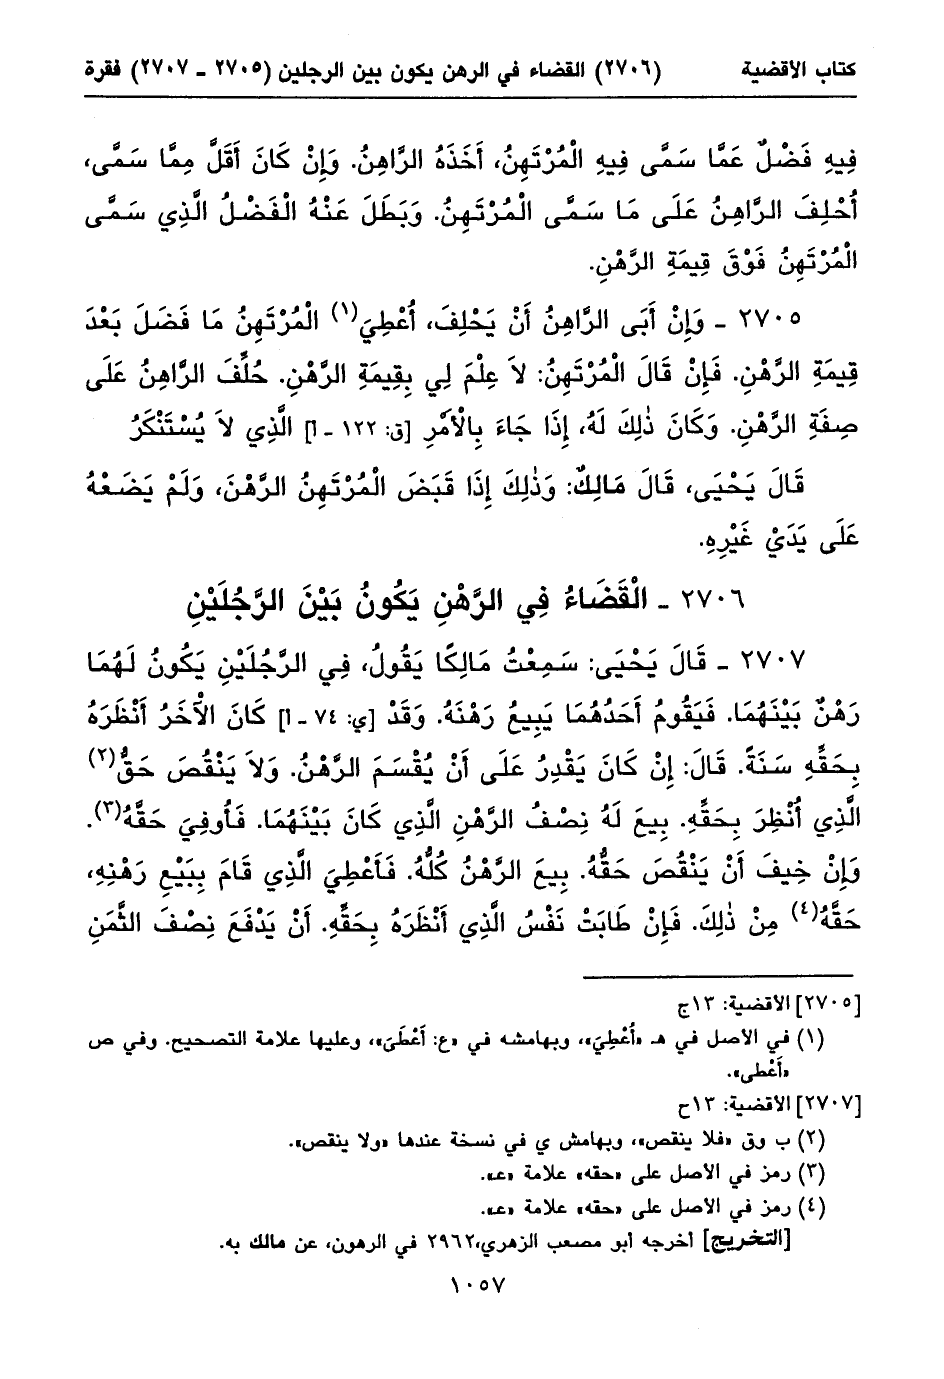 كتاب الأقضية (٢٧٠٦) القضاء في الرهن يكون بين الرجلين (٢٧٠٥ - ٢٧٠٧) فقرة
فِيهِ فَضْلٌ عَمَّا سَمَّى فِيهِ الْمُرْتَهِنُ، أَخَذَهُ الرَّاهِنُ. وَإِنْ كَانَ أَقَلَّ مِمَّا سَمَّى،
أُحْلِفَ الرَّاهِنُ عَلَى مَا سَمَّى الْمُرْتَهِنُ. وَبَطَلَ عَنْهُ الْفَضْلُ الَّذِي سَمَّى
الْمُرْتَهِنُ فَوْقَ قِيمَةِ الرَّهْنِ.
٢٧٠٥ - وَإِنْ أَبَى الرَّاهِنُ أَنْ يَحْلِفَ، أُعْطِيَ(١) الْمُرْتَهِنُ مَا فَضَلَ بَعْدَ
قِيمَةِ الرَّهْنِ. فَإِنْ قَالَ الْمُرْتَهِنُ: لاَ عِلْمَ لِي بِقِيمَةِ الرَّهْنِ. حُلِّفَ الرَّاهِنُ عَلَى
صِفَةِ الرَّهْنِ. وَكَانَ ذٰلِكَ لَهُ، إِذَا جَاءَ بِالْأَمْرِ [ق: ١٢٢ - أ] الَّذِي لاَ يُسْتَنْكَرُ
قَالَ يَحْيَى، قَالَ مَالِكٌ: وَذٰلِكَ إِذَا قَبَضَ الْمُرْتَهِنُ الرَّهْنَ، وَلَمْ يَضَعْهُ
عَلَى يَدَيْ غَيْرِهِ.
٢٧٠٦ - الْقَضَاءُ فِي الرَّهْنِ يَكُونُ بَيْنَ الرَّجُلَيْنِ
٢٧٠٧ - قَالَ يَحْيَى: سَمِعْتُ مَالِكًا يَقُولُ، فِي الرَّجُلَيْنِ يَكُونُ لَهُمَا
رَهْنٌ بَيْنَهُمَا. فَيَقُومُ أَحَدُهُمَا يَبِيعُ رَهْنَهُ. وَقَدْ [ي: ٧٤ - أ] كَانَ الْآخَرُ أَنْظَرَهُ
بِحَقِّهِ سَنَةً. قَالَ: إِنْ كَانَ يَقْدِرُ عَلَى أَنْ يُقْسَمَ الرَّهْنُ. وَلاَ يَنْقُصَ حَقُّ(٢)
الَّذِي أُنْظِرَ بِحَقِّهِ. بِيعَ لَهُ نِصْفُ الرَّهْنِ الَّذِي كَانَ بَيْنَهُمَا. فَأُوفِيَ حَقَّهُ(٣).
وَإِنْ خِيفَ أَنْ يَنْقُصَ حَقُّهُ. بِيعَ الرَّهْنُ كُلُّهُ. فَأُعْطِيَ الَّذِي قَامَ بِبَيْعِ رَهْنِهِ،
حَقَّهُ(٤) مِنْ ذٰلِكَ. فَإِنْ طَابَتْ نَفْسُ الَّذِي أَنْظَرَهُ بِحَقِّهِ. أَنْ يَدْفَعَ نِصْفَ الثَّمَنِ
[٢٧٠٥] الأقضية: ١٣ج
(١) في الأصل في هـ «أُعْطِيَ»، وبهامشه في «ع: أَعْطَى»، وعليها علامة التصحيح. وفي ص
«أَعْطى».
[٢٧٠٧] الأقضية: ١٣ح
(٢) ب وق «فلا ينقص»، وبهامش ي في نسخة عندها «ولا ينقص».
(٣) رمز في الأصل على «حقه» علامة «عـ».
(٤) رمز في الأصل على «حقه» علامة «عـ».
[التخريج] أخرجه أبو مصعب الزهري،٢٩٦٢ في الرهون، عن مالك به.
١٠٥٧